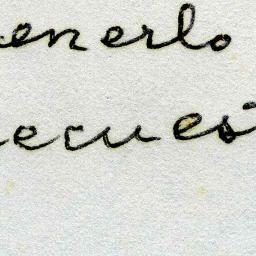 enerlo
ecues